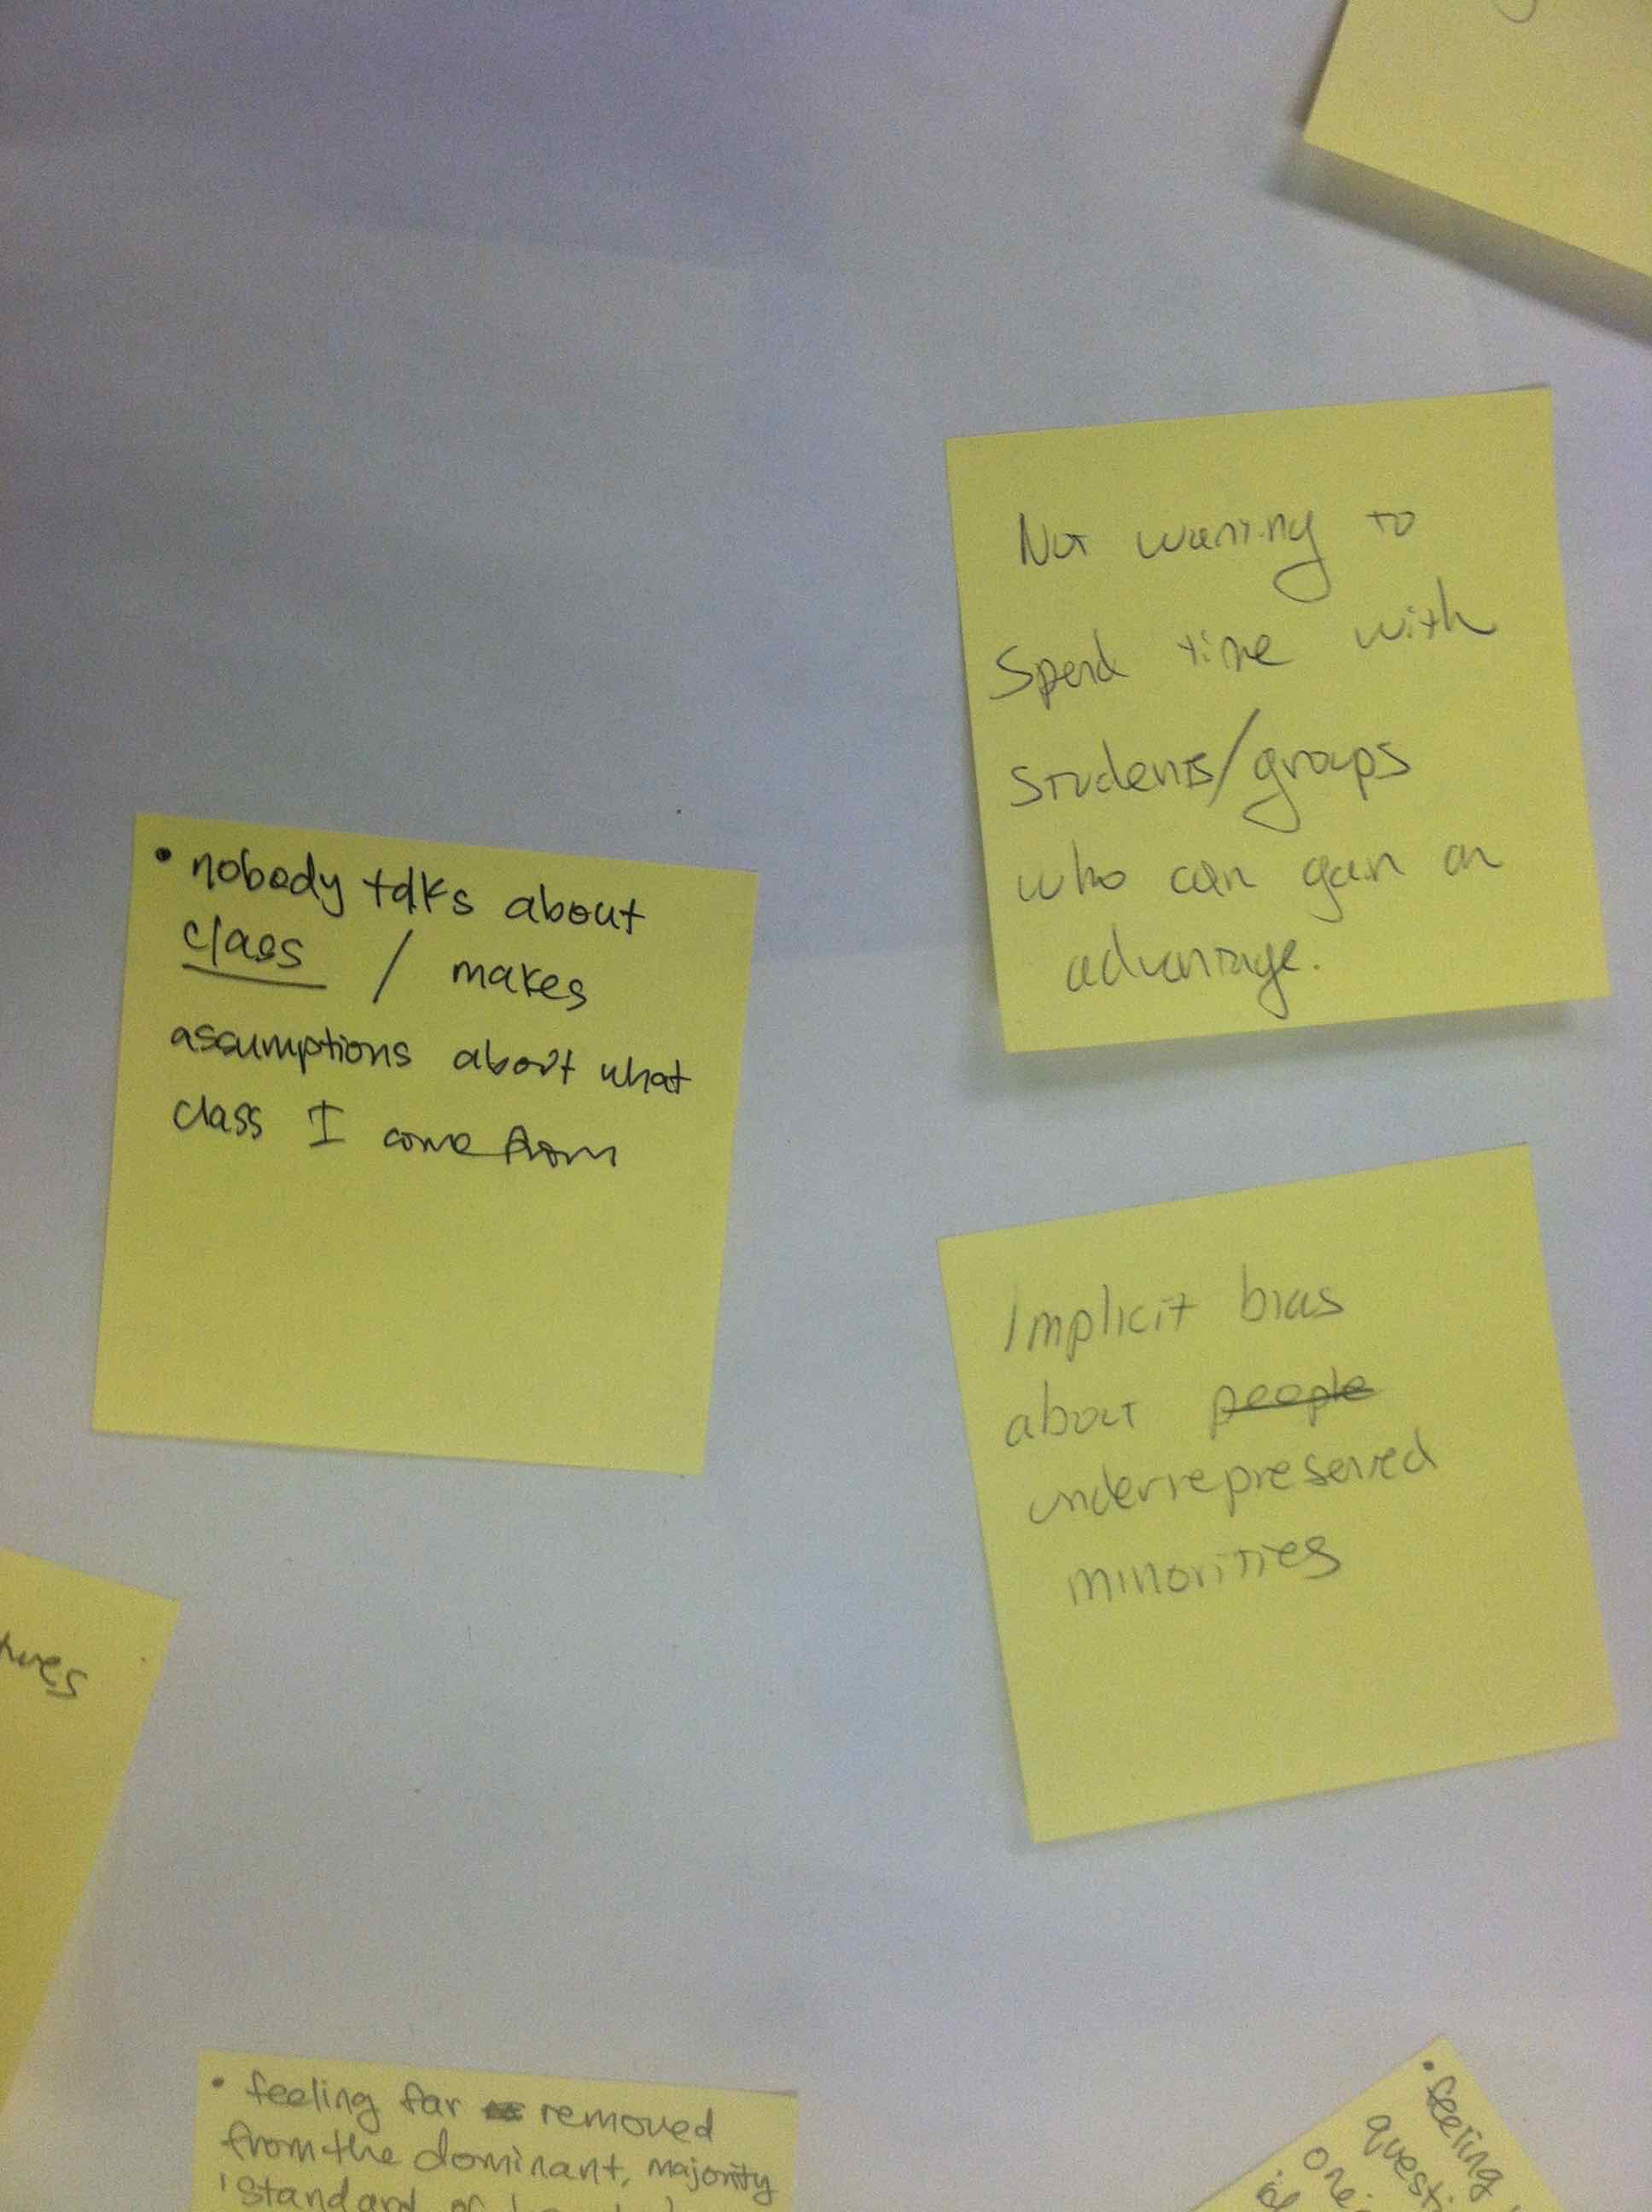 Not wanting to
Spend time with
students/groups
who can gain an
advantage.
• nobody talks about
class / makes
assumptions about what
class I come from
Implicit bias
about people
underrepresented
minorities
• feeling far removed
from the dominant, majority
'standard of
• feeling